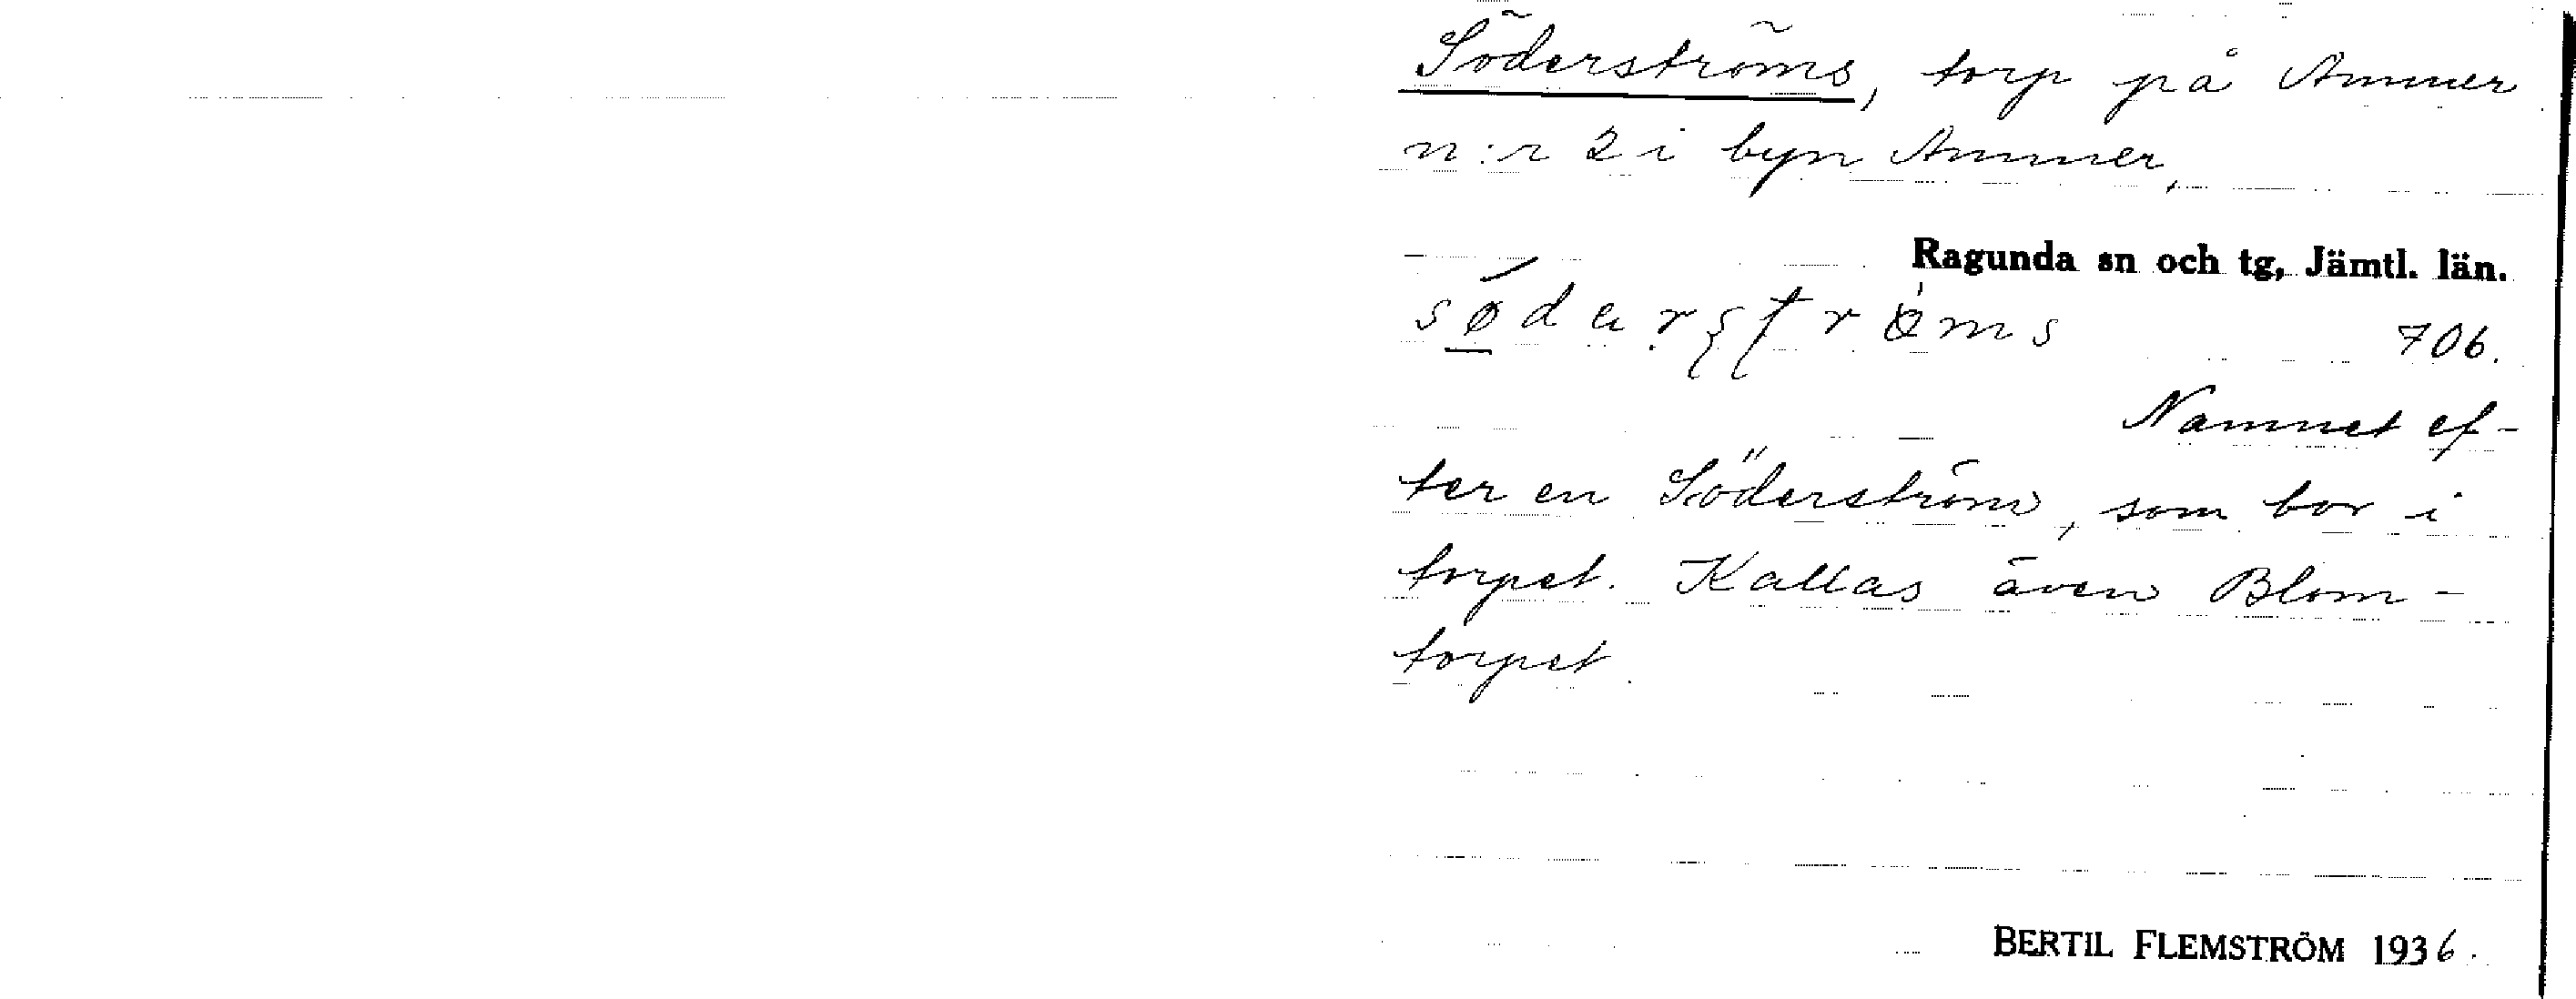 Söderströms, torp på Ammer
n:r 2 i byn Ammer,
Ragunda sn och tg, Jämtl. län.
706.
Namnet ef-
ter en Söderström, som bor i
torpet. Kallas även Blom-
torpet.
BERTIL FLEMSTRÖM 1936.